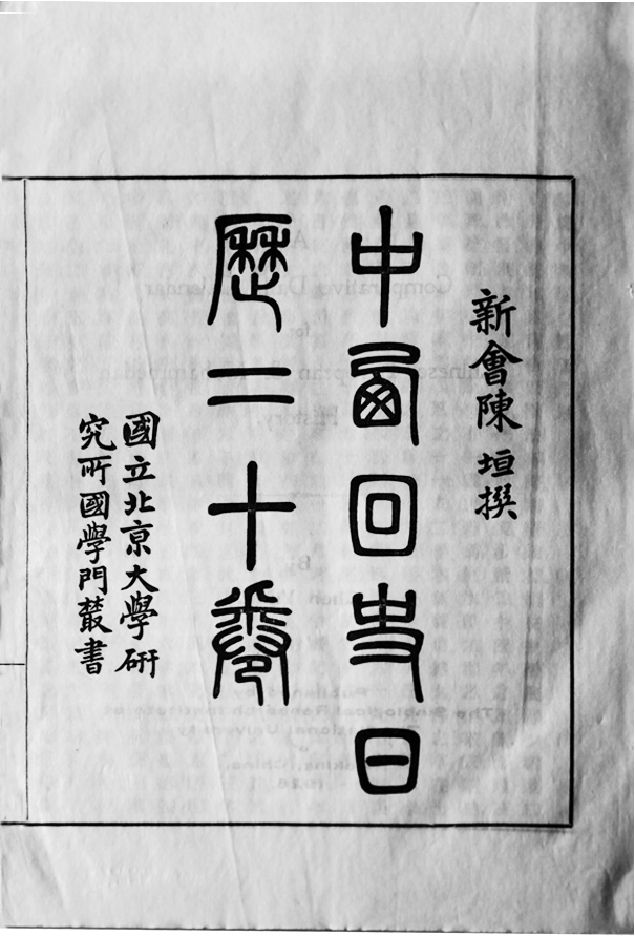 新會陳垣撰
中西回史日
歷二十卷
國立北京大學研
究所國學門叢書